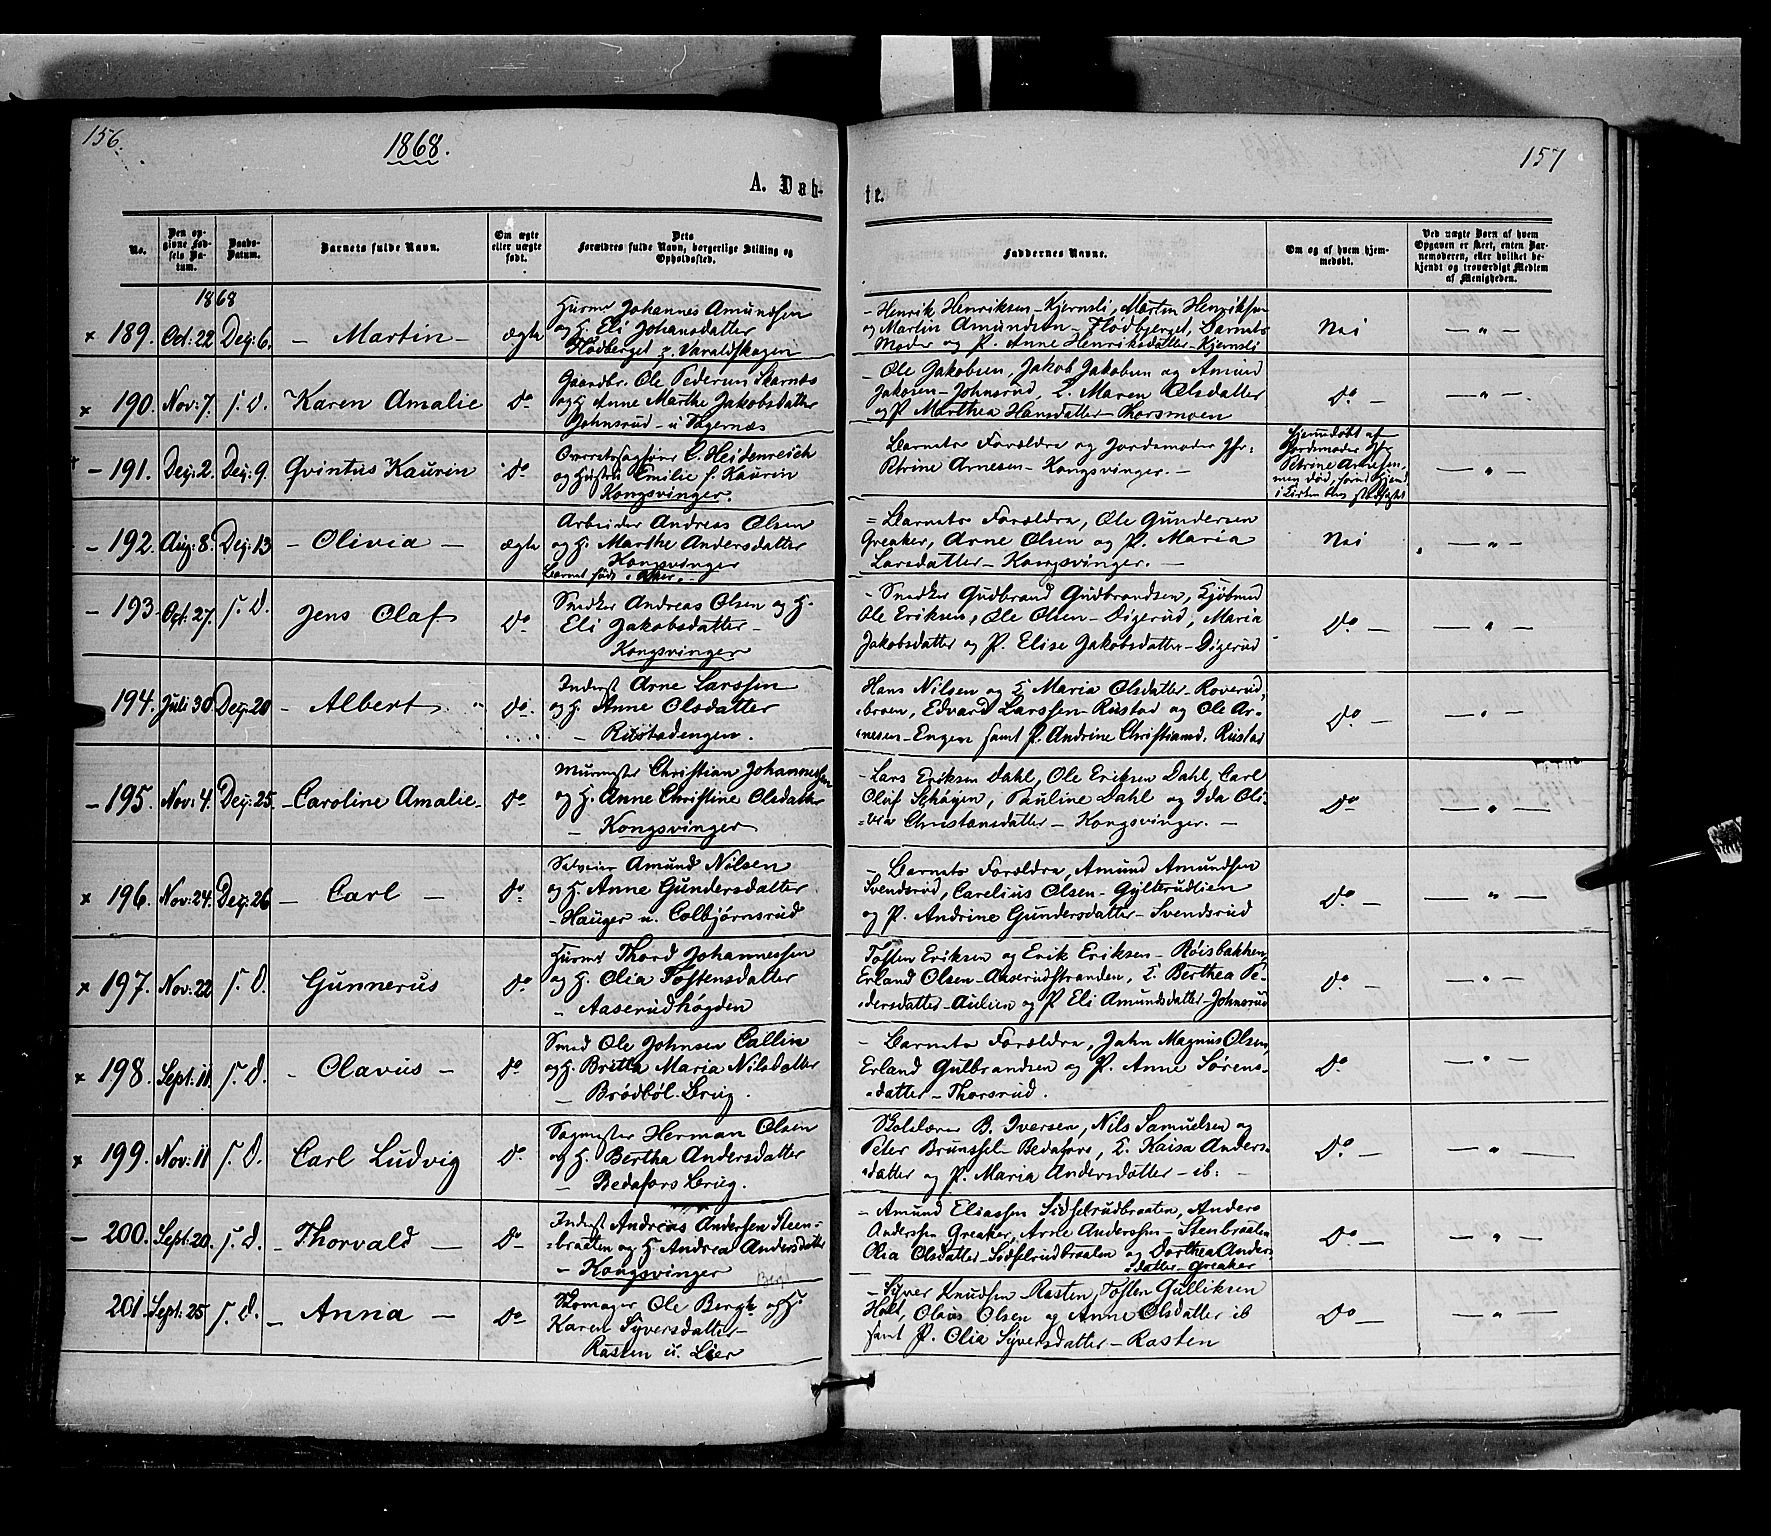 156.
1868.
157
A. Dåb-
te.
No.
Den op-
givne Fød-
sels Da-
tum.
Daabs-
Datum.
Barnets fulde Navn.
Om ægte
eller uægte
født.
Dets
Forældres fulde Navn, borgerlige Stilling og
Opholdssted.
Faddernes Navne.
Om og af hvem hjem-
medøbt.
Ved uægte Børn af hvem
Opgaven er skeet, enten Bar-
nemoderen, eller hvilket be-
kjendt og troværdigt Medlem
af Menigheden.
1868
× 189. Oct: 22 Dez: 6. – Martin – ægte
Huusm. Johannes Amundsen
og H. Eli Johansdatter
Flødberget p. Varaldskogen
– Henrik Henriksen – Kjernsli, Martin Henriksen
og Martin Amundsen – Flødbjerget, Barnets
Moder og P. Anne Henriksdatter – Kjernsli
Nei — „ —
× 190. Nov: 7. s. D. Karen Amalie do
Gaardbr. Ole Pedersen Skarnæs
og H. Anne Marthe Jakobsdatter
Johnsrud – u Tagernæs
– Ole Jakobsen, Jakob Jakobsen og Amund
Jakosen – Johnsrud, K. Maren Olsdatter
og P. Marthea Hansdatter – Thorsmoen
do – — „ —
– 191. Dez: 2. Dez: 9. Qvintus Kaurin do
Overretssagfører C. Heidenreich
og Hustru Emilie f. Kaurin
Kongsvinger.
Barnets Forældre og Jordemoder Jfr.
Petrine Arnesen – Kongsvinger. –
Hjemdøbt af
Jordemoder Jfr
Petrine Arnesen,
i Kirken blev stadfæstet
— „ —
– 192. Aug: 8. Dez: 13 – Olivia – ægte
Arbeider Andreas Olsen
og H. Marthe Andersdatter
Kongsvinger
Barnet født i Aker.
= Barnets Forældre, Ole Gundersen
Greaker, Arne Olsen og P. Maria
Larsdatter – Kongsvinger. –
Nei — „ —
– 193. Oct: 27. s. D. Jens Olaf do
Snedker Andreas Olsen og H.
Eli Jakobsdatter –
Kongsvinger
– Snedker Gudbrand Gudbrandsen, Kjøbmd
Ole Eriksen, Ole Olsen – Digerud, Maria
Jakobsdatter og P. Elise Jakobsdatter – Digerud
do – — „ —
194. Juli 30. Dez: 20 – Albert. do
Inderst Arne Larssen
og H. Anne Olsdatter
– Rustadengen.
Hans Nilsen og K Maria Olsdatter – Roverud,
broen, Edvard Larssen – Rustad og Ole Ar-
nesen – Engen samt P. Andrine Christiansd. Rustad
do – — „ —
– 195. Nov: 4. Dez: 25. – Caroline Amalie – do
Murmester Christian Johannessen
og H. Anne Christine Olsdatter
– Kongsvinger
– Lars Eriksen Dahl, Ole Eriksen Dahl, Carl
Oluf Schøyen, Pauline Dahl og Ida Oli-
via Christansdatter – Kongsvinger. –
do — „ —
× 196. Nov: 24. Dez: 26 – Carl – do
Selveier Amund Nilsen
og H. Anne Gundersdatter
– Hauger u. Colbjørnsrud
– Barnets Forældre, Amund Amundsen
Svendsrud, Carelius Olsen – Gylterudlien
og P. Andrine Gundersdatter – Svendsrud
do – — „ —
× 197. Nov: 22 s. D. Gunnerus do
Huusm. Thord Johannessen
og H. Olia Tostensdatter
– Aaserudhøgden
Tosten Eriksen og Erik Eriksen – Røisbakken,
Erland Olsen – Aaserudstranden, K. Berthea Pe-
dersdatter – Aulien og P Eli Amundsdatter – Johnsrud
do – — „ —
× 198. Sept: 11. s. D. – Olavus – do
Smed Ole Johnsen Callin
og H. Britta Maria Nilsdatter
– Brødbøl. Brug.
– Barnets Forældre, Jahn Magnus Olsen,
Erland Gulbrandsen og P. Anne Sørens-
datter – Thorsrud.
do – — „ —
× 199. Nov: 11 s. D. Carl Ludvig do
Sagmester Herman Olsen
og H. Bertha Andersdatter
– Bedafors Brug.
Skolelærer B. Iversen, Nils Samuelsen og
Peter Brunssel – Bedafors, K. Kaisa Anders-
datter og P. Maria Andersdatter – ib:
do – — „ —
– 200. Sept: 20. s. D. – Thorvald – do
Inderst Andreas Andersen Steen-
braaten og H. Andrea Andersdatter
– Kongsvinger
– Amund Eliassen Sidselrudbraaten, Anders
Andersen Greaker, Arne Anderssen – Stenbraaten
Olia Olsdatter – Sidselrudbraaten og Dorthea Anders-
datter – Greaker
do – — „ —
201. Sept: 25 s. D. – Anna – do
Skomager Ole Bergh og H.
Karen Syversdatter –
Rasten u. Lier
– Syver Knudsen Rasten, Tosten Gulliksen
Holt, Olaus Olsen og Anne Olsdatter ib
samt P. Olia Syversdatter – Rasten
do – — „ —